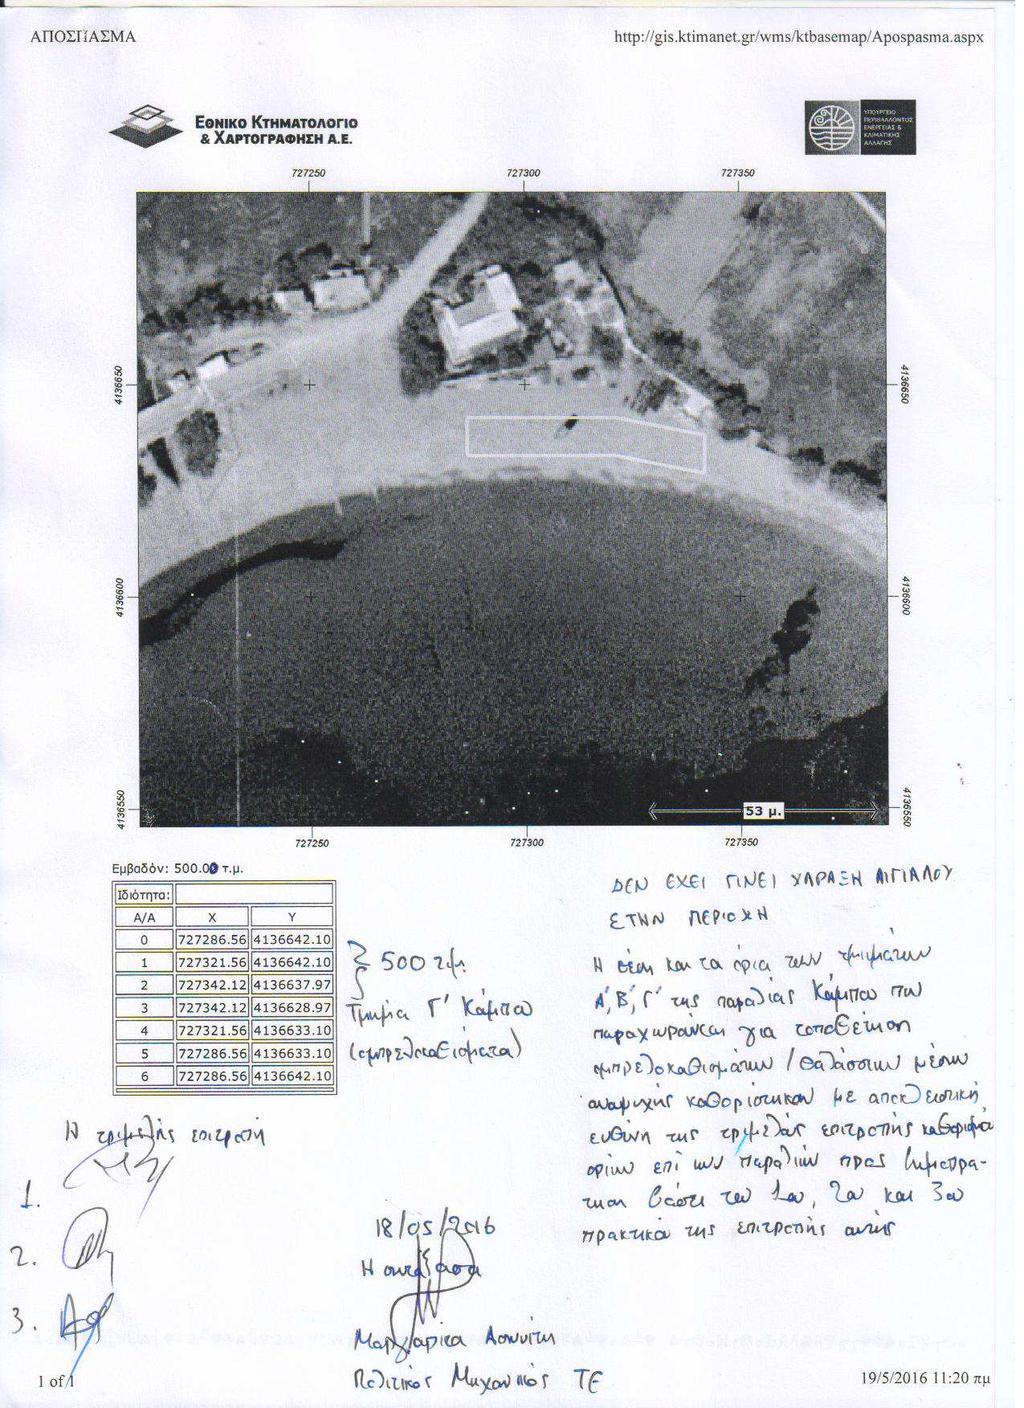 ΑΠΟΣΠΑΣΜΑ
http://gis.ktimanet.gr/wms/ktbasemap/Apospasma.aspx
ΕΘΝΙΚΟ ΚΤΗΜΑΤΟΛΟΓΙΟ
& ΧΑΡΤΟΓΡΑΦΗΣΗ Α.Ε.
ΥΠΟΥΡΓΕΙΟ
ΠΕΡΙΒΑΛΛΟΝΤΟΣ
ΕΝΕΡΓΕΙΑΣ &
ΚΛΙΜΑΤΙΚΗΣ
ΑΛΛΑΓΗΣ
727250 727300 727350
4136650 4136650
4136600 4136600
4136550 4136550
53 μ.
727250 727300 727350
Εμβαδόν: 500.00 τ.μ.
Ιδιότητα:
Α/Α X Y
0 727286.56 4136642.10
1 727321.56 4136642.10
2 727342.12 4136637.97
3 727342.12 4136628.97
4 727321.56 4136633.10
5 727286.56 4136633.10
6 727286.56 4136642.10
500 τμ
Τμήμα Γ' Κάμπου
(ομπρελοκαθίσματα)
ΔΕΝ ΕΧΕΙ ΓΙΝΕΙ ΧΑΡΑΞΗ ΑΙΓΙΑΛΟΥ
ΣΤΗΝ ΠΕΡΙΟΧΗ
Η θέση και τα όρια των τμημάτων
Α', Β', Γ' της παραλίας Κάμπου που
παραχωρούνται για τοποθέτηση
ομπρελοκαθισμάτων / θαλάσσιων μέσων
αναψυχής καθορίστηκαν με αποκλειστική
ευθύνη της τριμελούς επιτροπής καθορισμού
ορίων επί των παραλιών προς δημοπρά-
τηση βάσει του 1ου, 2ου και 3ου
πρακτικά της επιτροπής αυτής
Η τριμελής επιτροπή
1.
2.
3.
18/05/2016
Η συντάξασα
Μαργαρίτα
Πολιτικός Μηχανικός ΤΕ
1 of 1
19/5/2016 11:20 πμ